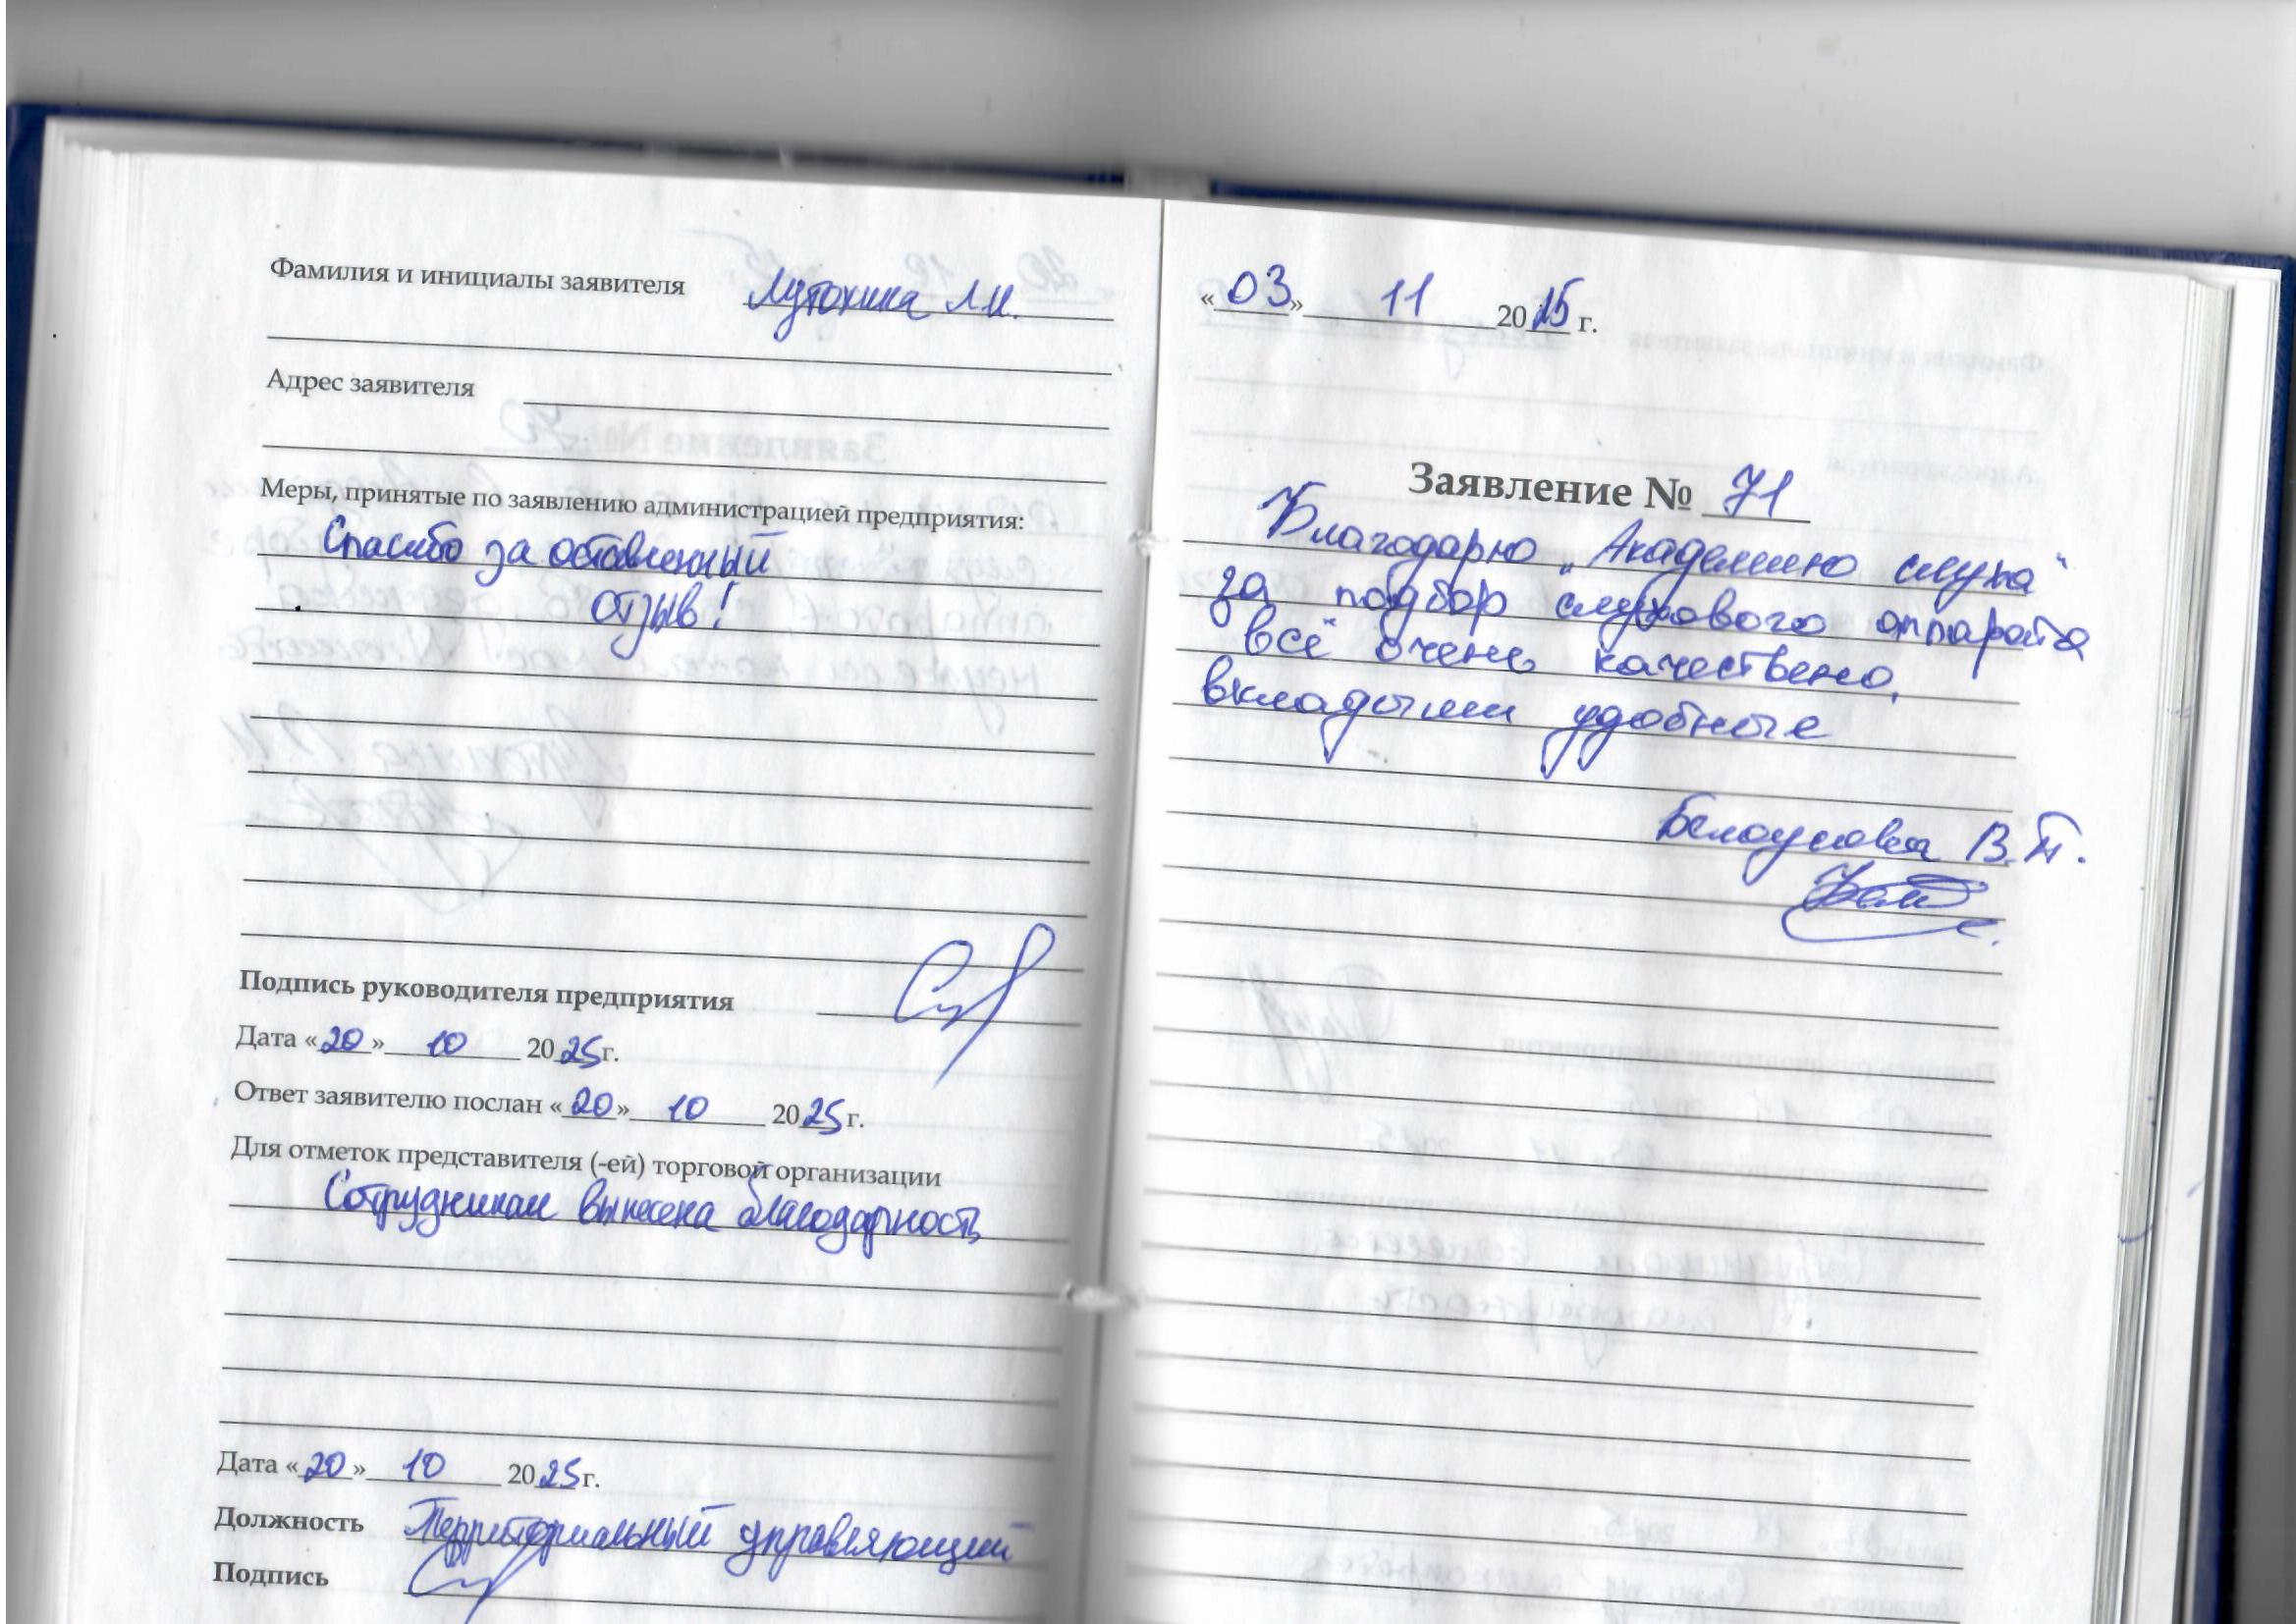 Фамилия и инициалы заявителя Лутохина Л.И.
Адрес заявителя
Меры, принятые по заявлению администрацией предприятия:
Спасибо за оставленный
отзыв!
Подпись руководителя предприятия
Дата «20» 10 2025 г.
Ответ заявителю послан «20» 10 2025 г.
Для отметок представителя (-ей) торговой организации
Сотрудникам вынесена благодарность
Дата «20» 10 2025 г.
Должность Территориальный управляющий
Подпись
«03» 11 2025 г.
Заявление № 71
Благодарю „Академию слуха"
за подбор слухового аппарата
всё очень качествено,
вкладыши удобные
Белоусова В.П.